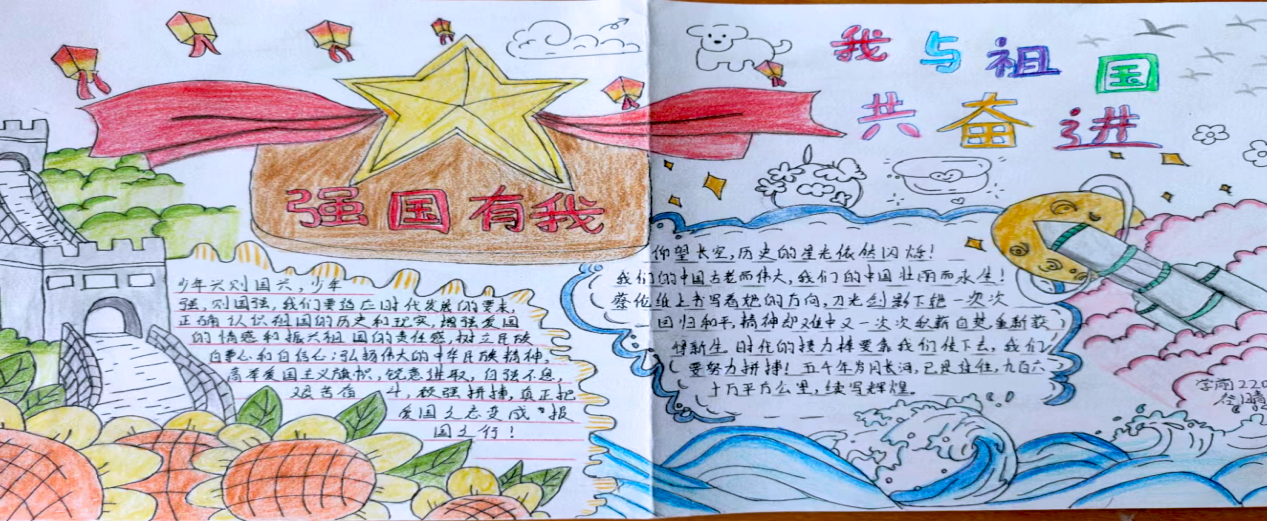 强国有我
少年兴则国兴，少年
强，则国强，我们要适应时代发展的要求，
正确认识祖国的历史和现实，增强爱国
的情感和振兴祖国的责任感，树立民族
自尊心和自信心；弘扬伟大的中华民族精神，
高举爱国主义旗帜，锐意进取，自强不息，
艰苦奋斗，顽强拼搏，真正把
爱国之志变成"报
国之行！
我与祖国
共奋进
仰望长空，历史的星光依然闪烁！
我们的中国古老而伟大，我们的中国壮丽而永生！
蔡伦纸上书写着她的方向，刀光剑影下她一次次
回归和平，精神却难中又一次次
得新生。时代的接力棒要靠我们传下去，我们
要努力拼搏！五千年岁月长河，已是往往，九百六
十万平方公里，续写辉煌。